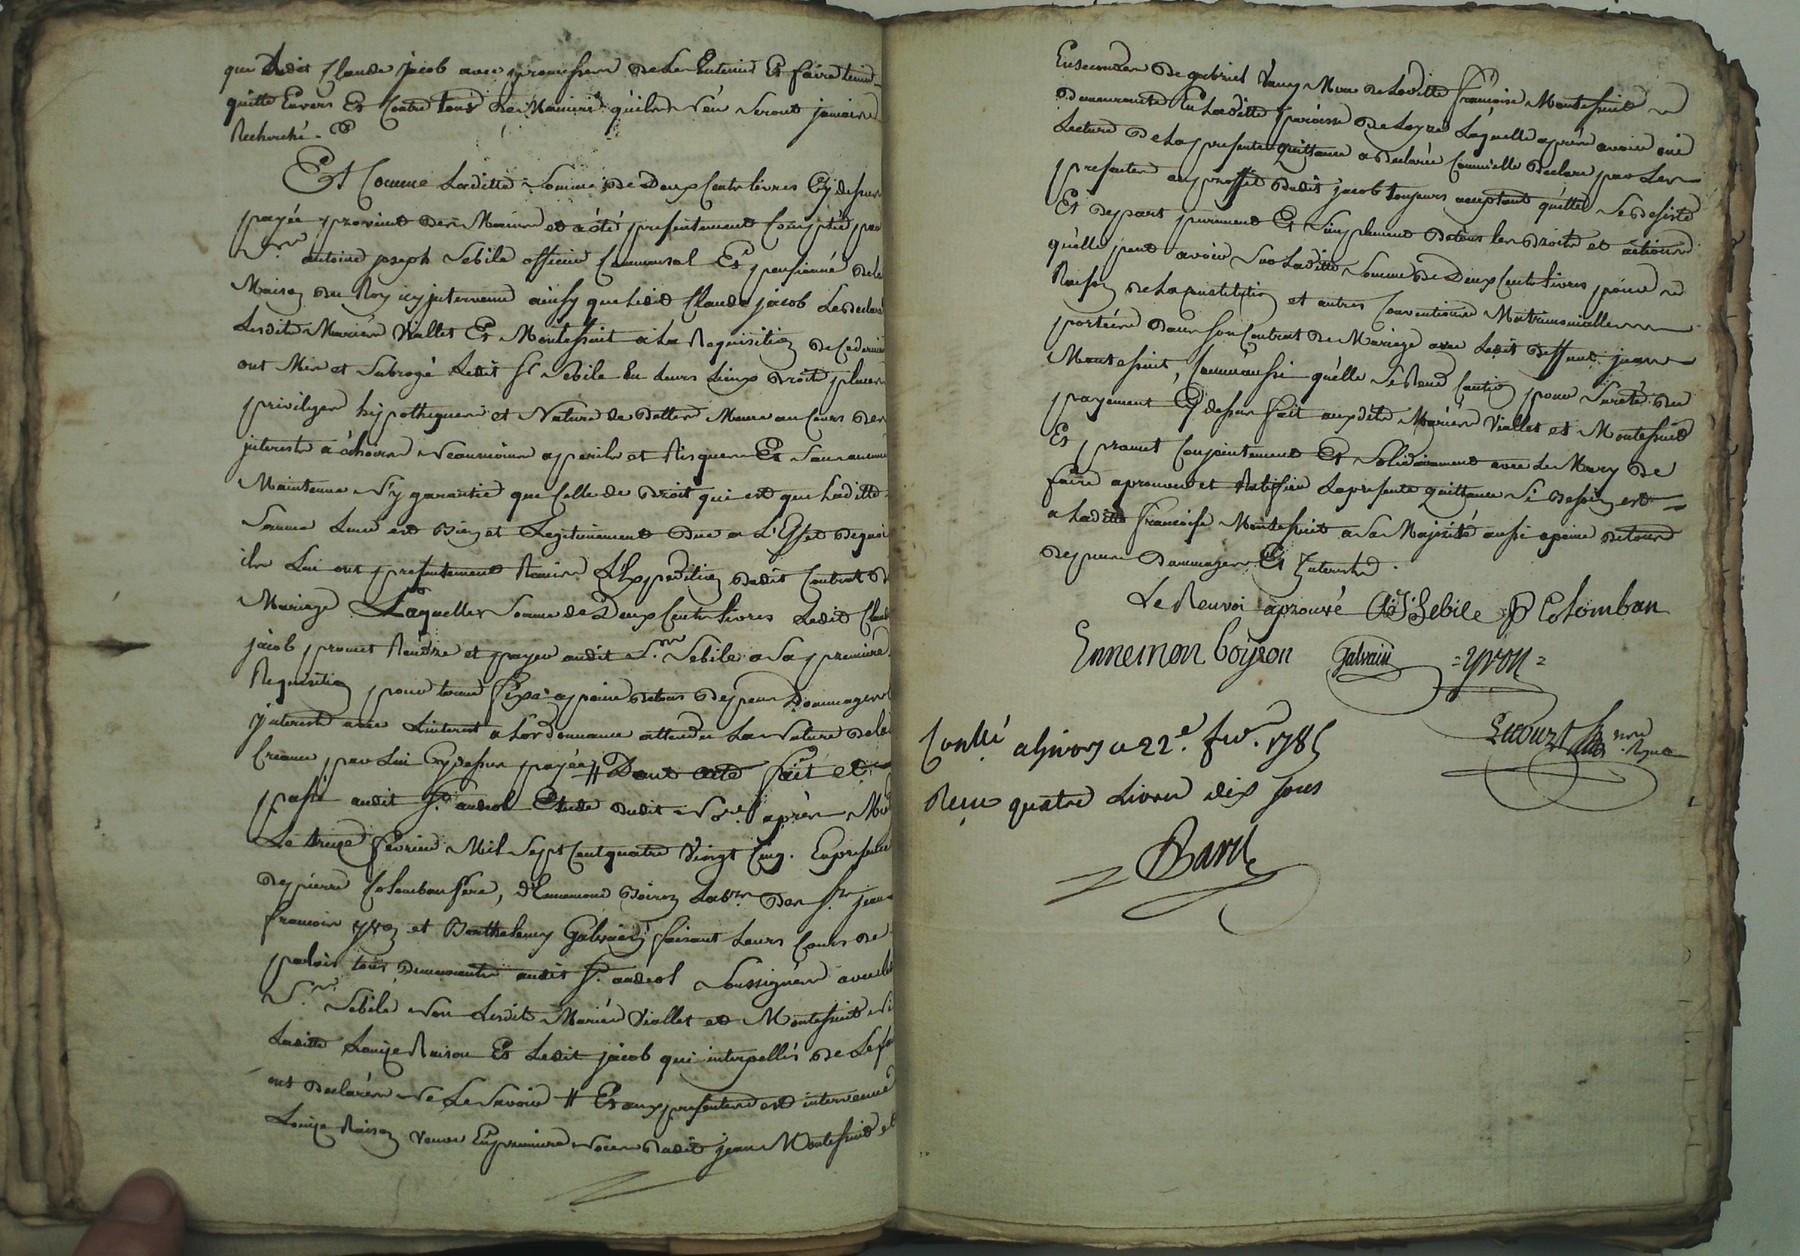 que ledit Claude jacob avec promesse de L'en tenir Et faire tenir
quitte Envers Et Contre tous De Maniere qu'ils N'en Seront jamais
Recherché.
Et Comme Laditte Somme de Deux Cents livres Cy dessus
payée provient Des Mains et a été presentement Comptée par
Sr. antoine joseph Sebile officier Commensal Et pensionné de la
Maison du Roy icy intervenu ainsy que Ledit Claude jacob Le declare
Lesdits Mariés Viallet Et Montessuit a La Requisition de Ce dernier
ont Mis et Subrogé Ledit Sr. Sebile En Leurs Lieux Droit places
privileges hypotheques et Nature de Dettes Meme au Cours des
interests a échoir Neanmoins a perils et Risques Et Sans aucune
Maintenue N'y garantie que Celle de Droit qui est que Laditte
Somme Leur est Bien et Legitimement Due a L'Effet de quoi
ils Lui ont presentement Remis L'Expedition dudit Contrat de
Mariage Laquelle Somme de Deux Cents livres Ledit Claude
jacob promet Rendre et payer audit Sr. Sebile a Sa premiere
Requisition pour tout fixe a peine de tous depens Dommages
interests avec L'interest a L'ordonnance attendu La Nature de la
Creance par Lui Cy dessus payée # Dont acte fait et
passé audit St. andeol Etude dudit Nore. après Midi
Le treize fevrier Mil Sept Cent quatre Vingt Cinq. En presence
de pierre Colomban fere, d'Ennemond Boiron Labr. des Srs. jean
francois yvon et Barthelemy Galvain faisant Leurs Cours de
palais tous demeurants audit St. andeol Soussignés avec le
Sr. Sebile Non Lesdits Mariés Viallet et Montessuit Ni
Laditte Louise Raison Et Ledit jacob qui interpellés de Le faire
ont declarés Ne Le Savoir # Et aux presentes est intervenue
Louise Raison Veuve En premiere Noces dudit jean Montessuit et
En Secondes de gabriel Mere de Laditte françoise Montessuit
demeurante En Laditte paroisse de Laquelle après avoir oui
Lecture de La presente quittance a declarée Comme elle declare par Les
presentes au proffit dudit jacob toujours acceptant qu'elle Se desiste
Et depart purement Et Simplement de tous les Droits et actions
qu'elle peut avoir Sur Laditte Somme de Deux Cents livres pour
Raison de La Constitution et autres Conventions Matrimonialles
portées dans Son Contrat de Mariage avec Ledit deffunt jean
Montessuit, Comme aussi qu'elle Se Rend Caution pour Sureté du
payement Cy dessus fait auxdits Mariés Viallet et Montessuit
Et promet Conjointement Et Solidairement avec Les Mary de
faire aprouver et Ratifier La presente quittance Si Besoin est
a Laditte francoise Montessuit a Sa Majorité aussi a peine de tous
depens Dommages Et Interests.
Le Renvoi aprouvé AJ Sebile P Colomban
Ennemon boyron Galvain = yvon =
Contlé a Givors ce 22e. fer. 1785
Recu quatre Livres dix Sous